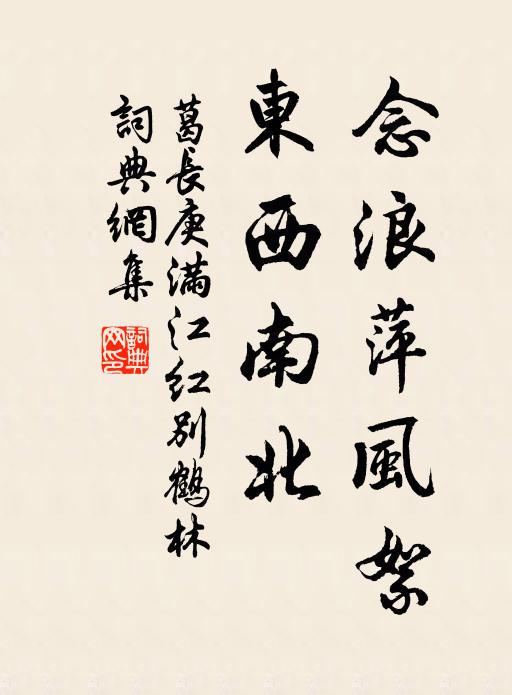 念浪萍風絮
東西南北
葛長庚滿江紅別鶴林
詞典網集
詞典網印